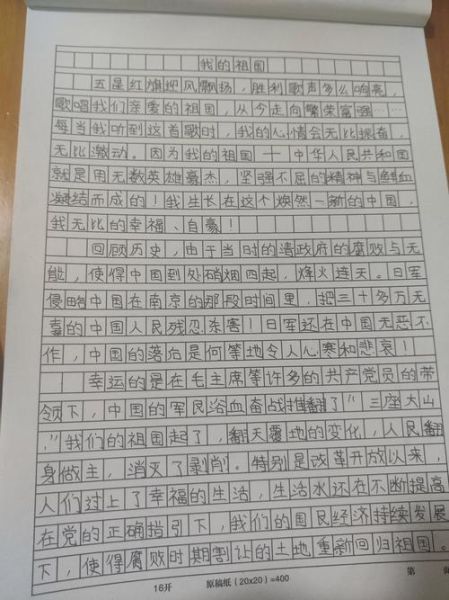 我的祖国
五星红旗迎风飘扬，胜利歌声多么响亮，
歌唱我们亲爱的祖国，从今走向繁荣富强……
每当我听到这首歌时，我的心情会无比振奋，
无比激动。因为我的祖国——中华人民共和国
就是用无数英雄豪杰，坚强不屈的精神与鲜血
凝结而成的！我生长在这个焕然一新的中国，
我无比的幸福、自豪！
回顾历史，由于当时的清政府的腐败与无
能，使得中国到处硝烟四起，烽火连天。日军
侵略中国在南京的那段时间里，把三十多万无
辜的中国人民残忍杀害！日军还在中国无恶不
作，中国的落后是何等地令人心寒和悲哀！
幸运的是在毛主席等许多的共产党员的带
领下，中国的军民浴血奋战推翻了"三座大山
."我们的祖国起了，翻天覆地的变化，人民翻
身做主，消灭了剥削。特别是改革开放以来，
人们过上了幸福的生活，生活水还在不断提高
在党的正确指引下，我们的国民经济持续发展
下，使得腐败时期割让的土地重新回归祖国。
16开 原稿纸（20x20）=400 第 页